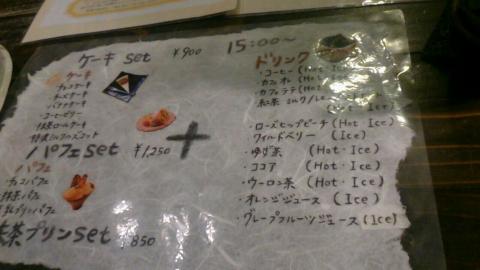 ケーキ set ¥900
ケーキ
・チョコケーキ
・チーズケーキ
・バナナケーキ
・コーヒーゼリー
・抹茶ロールケーキ
・特製
パフェ set ¥1,250
パフェ
・チョコパフェ
・抹茶パフェ
プリンパフェ
抹茶プリン set ¥850
+
15:00〜
ドリンク
・コーヒー (Hot
・カフェオレ (Hot
・カフェラテ (Hot
・紅茶 ミルク/レモン
Ice)
・ローズヒップピーチ (Hot・Ice)
・ワイルドベリー (Ice)
・ゆず茶 (Hot・Ice)
・ココア (Hot・Ice)
・ウーロン茶 (Hot・Ice)
・オレンジジュース (Ice)
・グレープフルーツジュース (Ice)